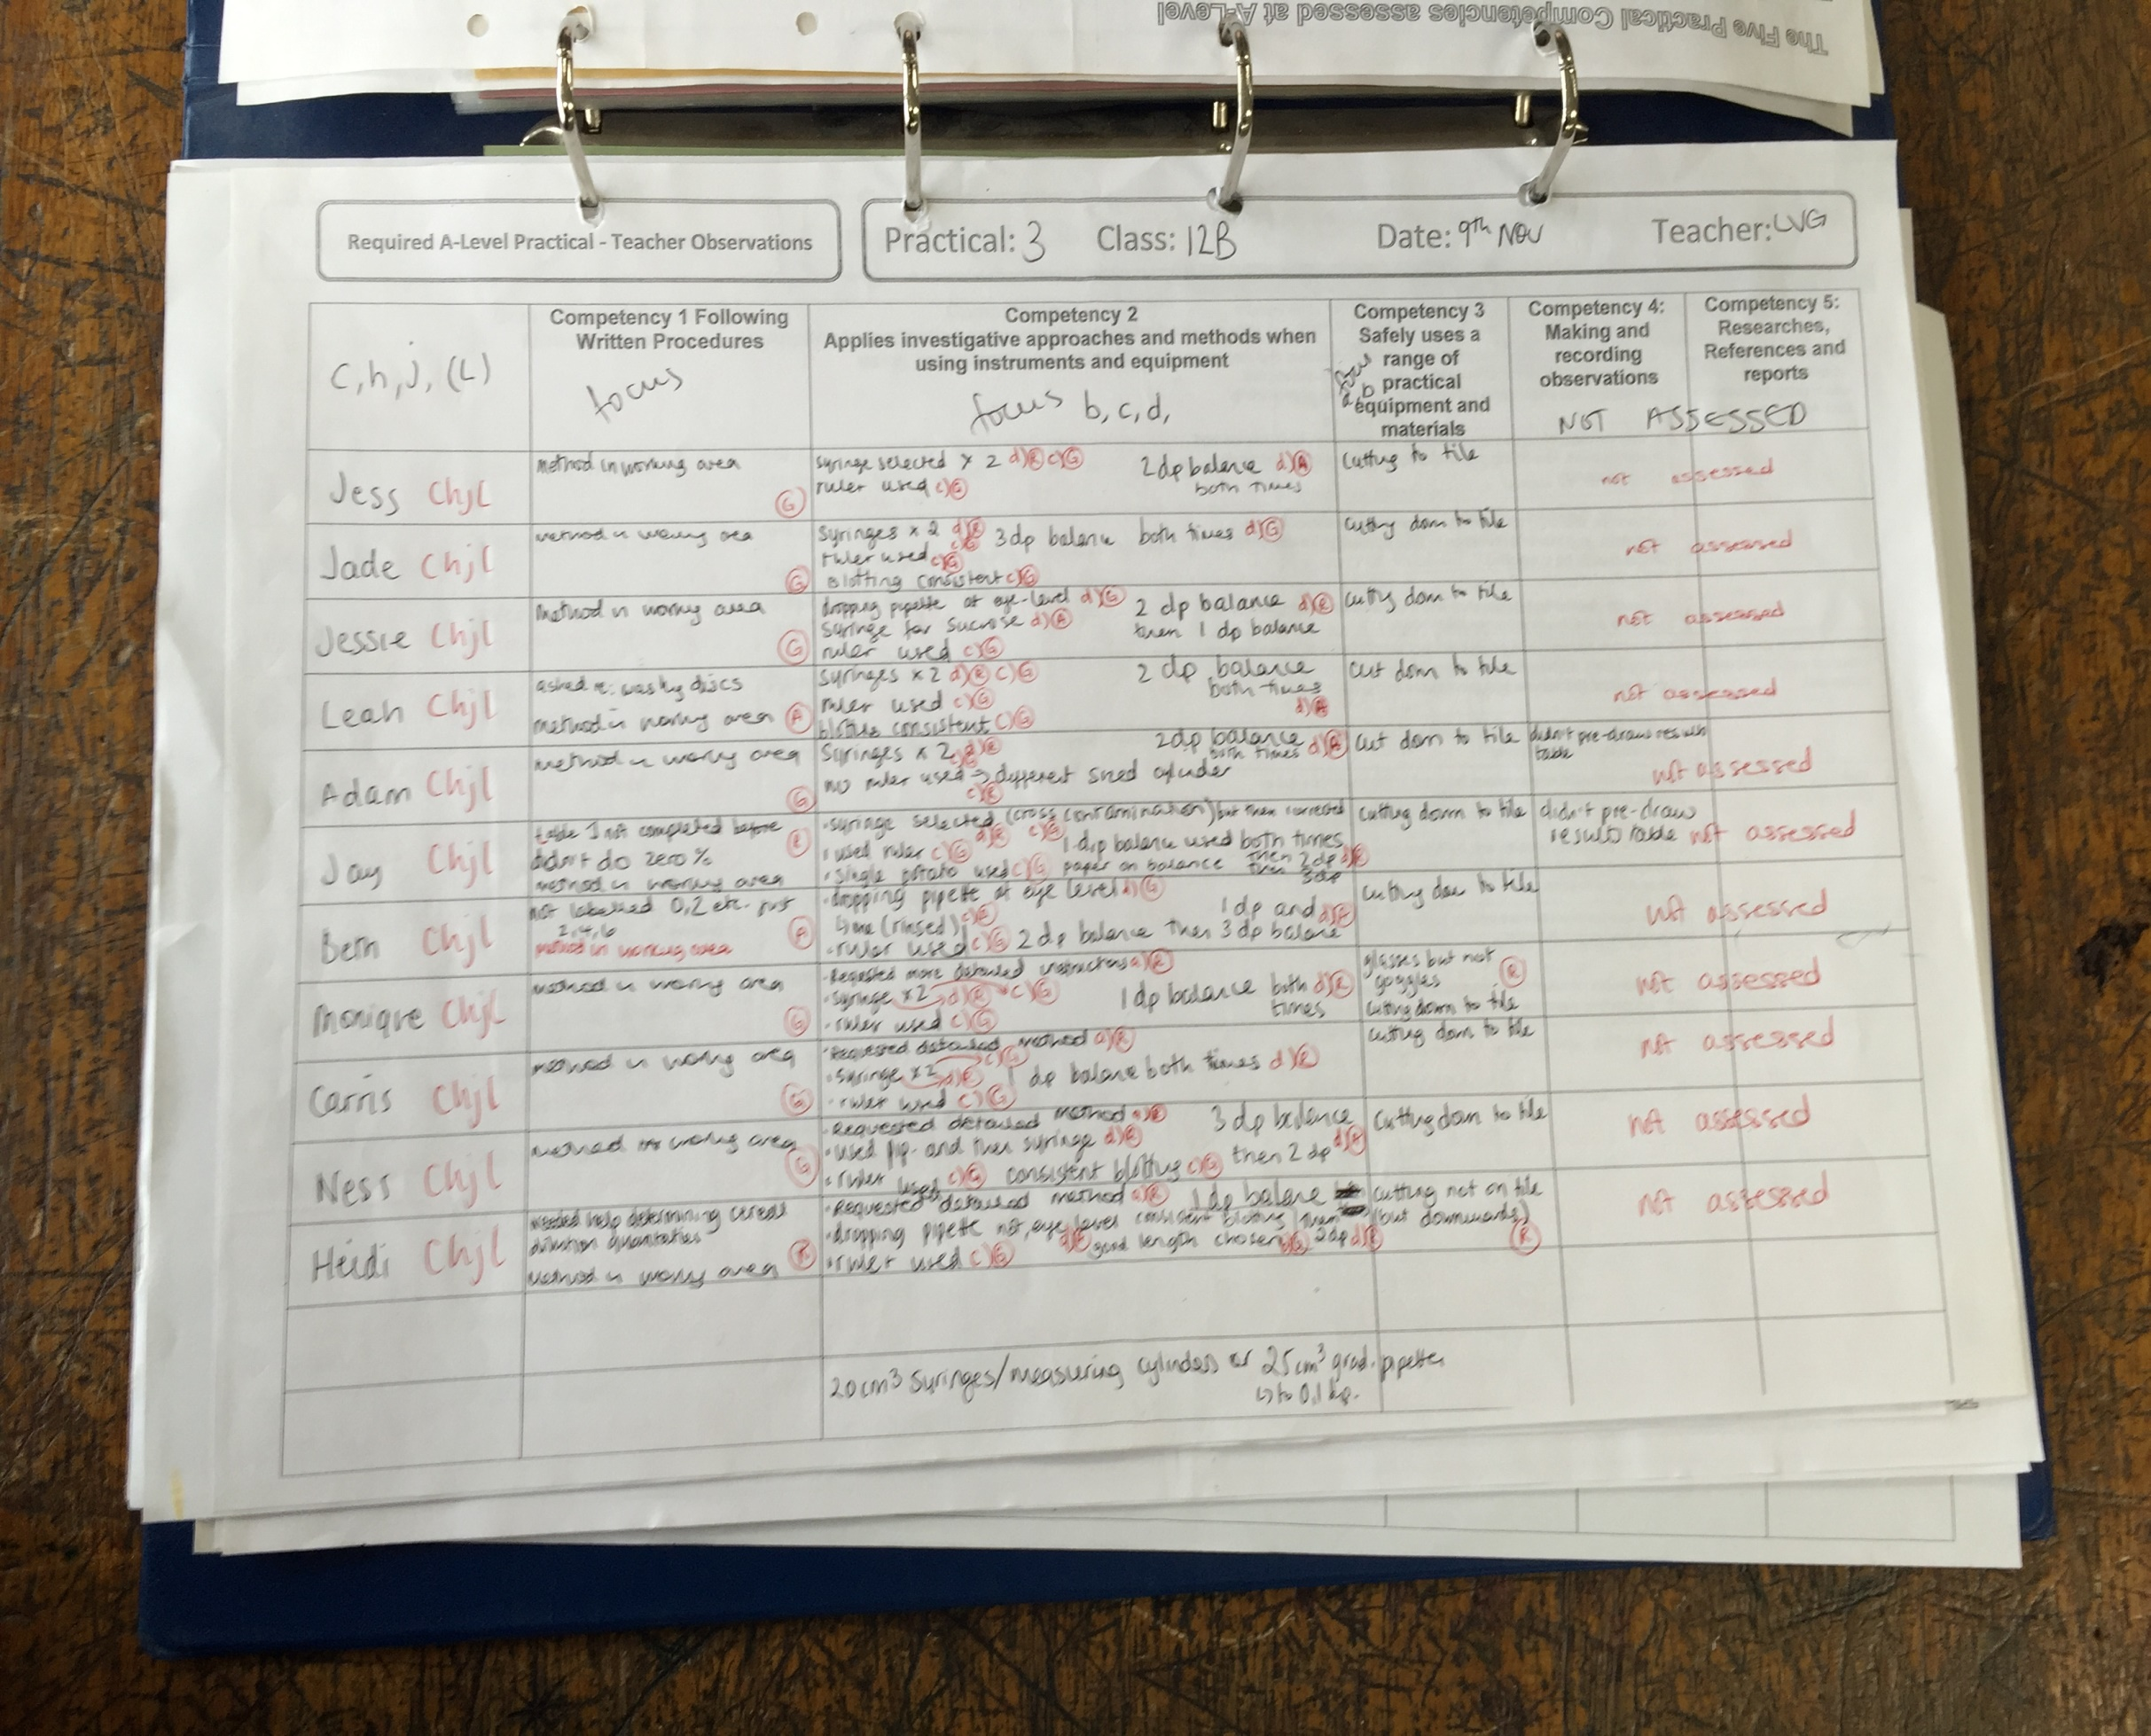 The Five Practical Competencies assessed at A-Level
Required A-Level Practical - Teacher Observations
Practical: 3 Class: 12B Date: 9th Nov Teacher: LVG
C, h, j, (L)
Competency 1 Following
Written Procedures
focus
Competency 2
Applies investigative approaches and methods when
using instruments and equipment
focus b, c, d,
Competency 3
Safely uses a
range of
practical
equipment and
materials
focus
a, b
Competency 4:
Making and
recording
observations
Competency 5:
Researches,
References and
reports
NOT ASSESSED
Jess Chjl
method in working area
G
syringe selected x 2 d) R c) G
ruler used c) G
2dp balance d) A
both times
cutting to tile
not assessed
Jade Chjl
method in working area
G
Syringes x 2 d) R
c) G
ruler used c) G
Blotting consistent c) G
3dp balance both times d) G
cutting down to tile
not assessed
Jessie Chjl
Method in working area
G
dropping pipette at eye-level d) G
Syringe for sucrose d) A
ruler used c) G
2 dp balance d) R
then 1 dp balance
cutting down to tile
not assessed
Leah Chjl
asked re: washing discs
method in working area A
Syringes x 2 d) R c) G
ruler used c) G
blotting consistent c) G
2 dp balance
both times
d) A
cut down to tile
not assessed
Adam Chjl
method in working area
G
Syringes x 2 d) R
no ruler used → different sized cylinder
c) R
2dp balance
both times d) A
cut down to tile
didn't pre-draw results
table
not assessed
Jay Chjl
table 1 not completed before
didn't do zero %
R
method in working area
• syringe selected (cross contamination) but then corrected
d) R c) G
• used ruler c) G
• single potato used c) G
1dp balance used both times
paper on balance
then 2dp d) R
then 3dp
cutting down to tile
didn't pre-draw
results table
not assessed
Beth Chjl
not labelled 0,2 etc. just
2,4,6
A
method in working area
• dropping pipette at eye level d) G
(rinsed) c)
• ruler used c) G
1dp and
2 dp balance then 3dp balance
cutting down to tile
not assessed
Monique Chjl
method in working area
G
• Requested more detailed instructions a) R
• syringe x2 d) R c) G
• ruler used c) G
1dp balance both d) R
times
glasses but not
goggles R
cutting down to tile
not assessed
Carris Chjl
method in working area
G
• Requested detailed method a) R
c) G
• syringe x2 d) R
• ruler used c) G
1 dp balance both times d) R
cutting down to tile
not assessed
Ness Chjl
method in working area
G
• Requested detailed method a) R
• used pip. and then syringe d) R
• ruler used c) G consistent blotting c) G
3 dp balance
then 2 dp
cutting down to tile
not assessed
Heidi Chjl
needed help determining
dilution quantities
R
method in working area
• Requested detailed method a) R
• dropping pipette not eye level
• ruler used c) G
consistent blotting
good length chosen
1dp balance
then
2dp d) R
cutting not on tile
(but downwards)
R
not assessed
20cm³ syringes/measuring cylinders or 25cm³ grad. pipettes
↳ to 0.1 dp.